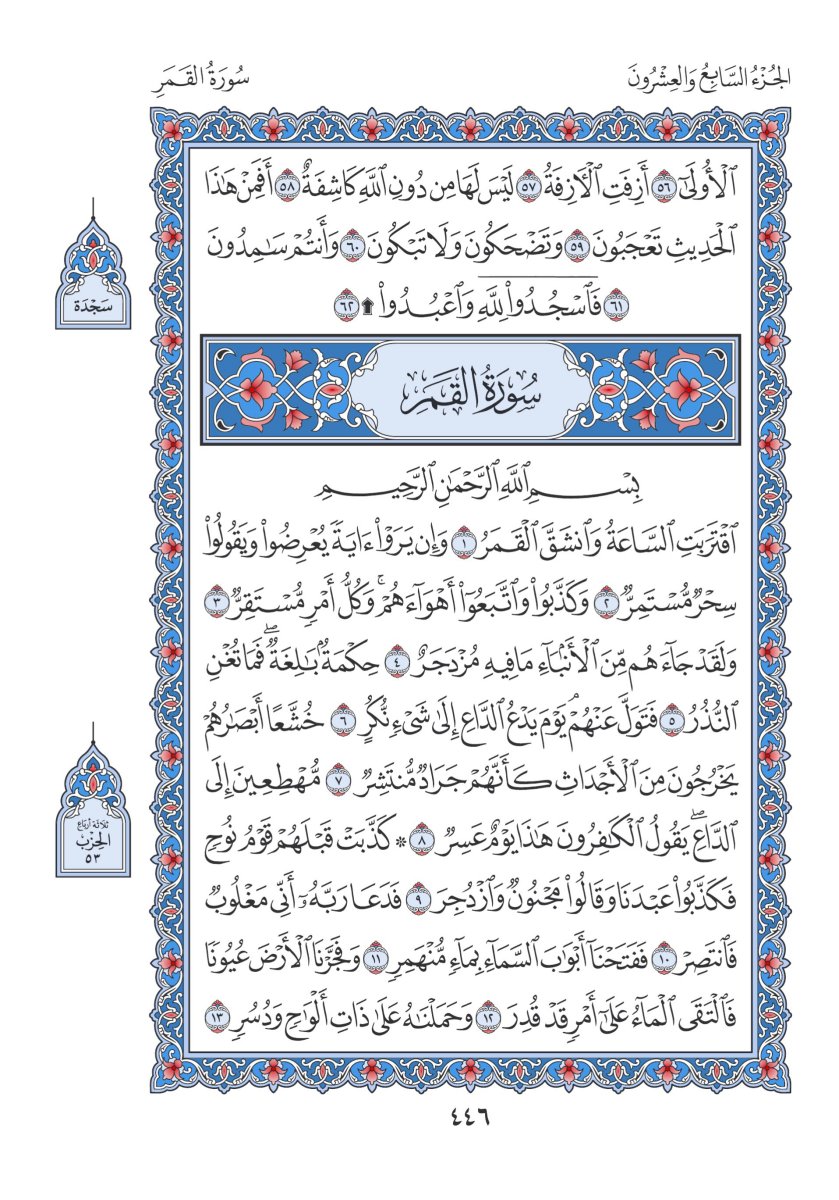 الجُزْءُ السَّابِعُ وَالعِشْرُونَ
سُورَةُ القَمَرِ
ٱلۡأُولَىٰٓ ٥٦ أَزِفَتِ ٱلۡأٓزِفَةُ ٥٧ لَيۡسَ لَهَا مِن دُونِ ٱللَّهِ كَاشِفَةٌ ٥٨ أَفَمِنۡ هَٰذَا
ٱلۡحَدِيثِ تَعۡجَبُونَ ٥٩ وَتَضۡحَكُونَ وَلَا تَبۡكُونَ ٦٠ وَأَنتُمۡ سَٰمِدُونَ
٦١ فَٱسۡجُدُواْ لِلَّهِ وَٱعۡبُدُواْ ۩ ٦٢
سَجْدَة
سُورَةُ القَمَرِ
بِسۡمِ ٱللَّهِ ٱلرَّحۡمَٰنِ ٱلرَّحِيمِ
ٱقۡتَرَبَتِ ٱلسَّاعَةُ وَٱنشَقَّ ٱلۡقَمَرُ ١ وَإِن يَرَوۡاْ ءَايَةٗ يُعۡرِضُواْ وَيَقُولُواْ
سِحۡرٞ مُّسۡتَمِرّٞ ٢ وَكَذَّبُواْ وَٱتَّبَعُوٓاْ أَهۡوَآءَهُمۡۚ وَكُلُّ أَمۡرٖ مُّسۡتَقِرّٞ ٣
وَلَقَدۡ جَآءَهُم مِّنَ ٱلۡأَنۢبَآءِ مَا فِيهِ مُزۡدَجَرٌ ٤ حِكۡمَةُۢ بَٰلِغَةٞۖ فَمَا تُغۡنِ
ٱلنُّذُرُ ٥ فَتَوَلَّ عَنۡهُمۡۘ يَوۡمَ يَدۡعُ ٱلدَّاعِ إِلَىٰ شَيۡءٖ نُّكُرٍ ٦ خُشَّعًا أَبۡصَٰرُهُمۡ
يَخۡرُجُونَ مِنَ ٱلۡأَجۡدَاثِ كَأَنَّهُمۡ جَرَادٞ مُّنتَشِرٞ ٧ مُّهۡطِعِينَ إِلَى
ٱلدَّاعِۖ يَقُولُ ٱلۡكَٰفِرُونَ هَٰذَا يَوۡمٌ عَسِرٞ ٨ * كَذَّبَتۡ قَبۡلَهُمۡ قَوۡمُ نُوحٖ
ثلاثة أرباع
الحِزْب
٥٣
فَكَذَّبُواْ عَبۡدَنَا وَقَالُواْ مَجۡنُونٞ وَٱزۡدُجِرَ ٩ فَدَعَا رَبَّهُۥٓ أَنِّي مَغۡلُوبٞ
فَٱنتَصِرۡ ١٠ فَفَتَحۡنَآ أَبۡوَٰبَ ٱلسَّمَآءِ بِمَآءٖ مُّنۡهَمِرٖ ١١ وَفَجَّرۡنَا ٱلۡأَرۡضَ عُيُونٗا
فَٱلۡتَقَى ٱلۡمَآءُ عَلَىٰٓ أَمۡرٖ قَدۡ قُدِرَ ١٢ وَحَمَلۡنَٰهُ عَلَىٰ ذَاتِ أَلۡوَٰحٖ وَدُسُرٖ ١٣
٤٤٦